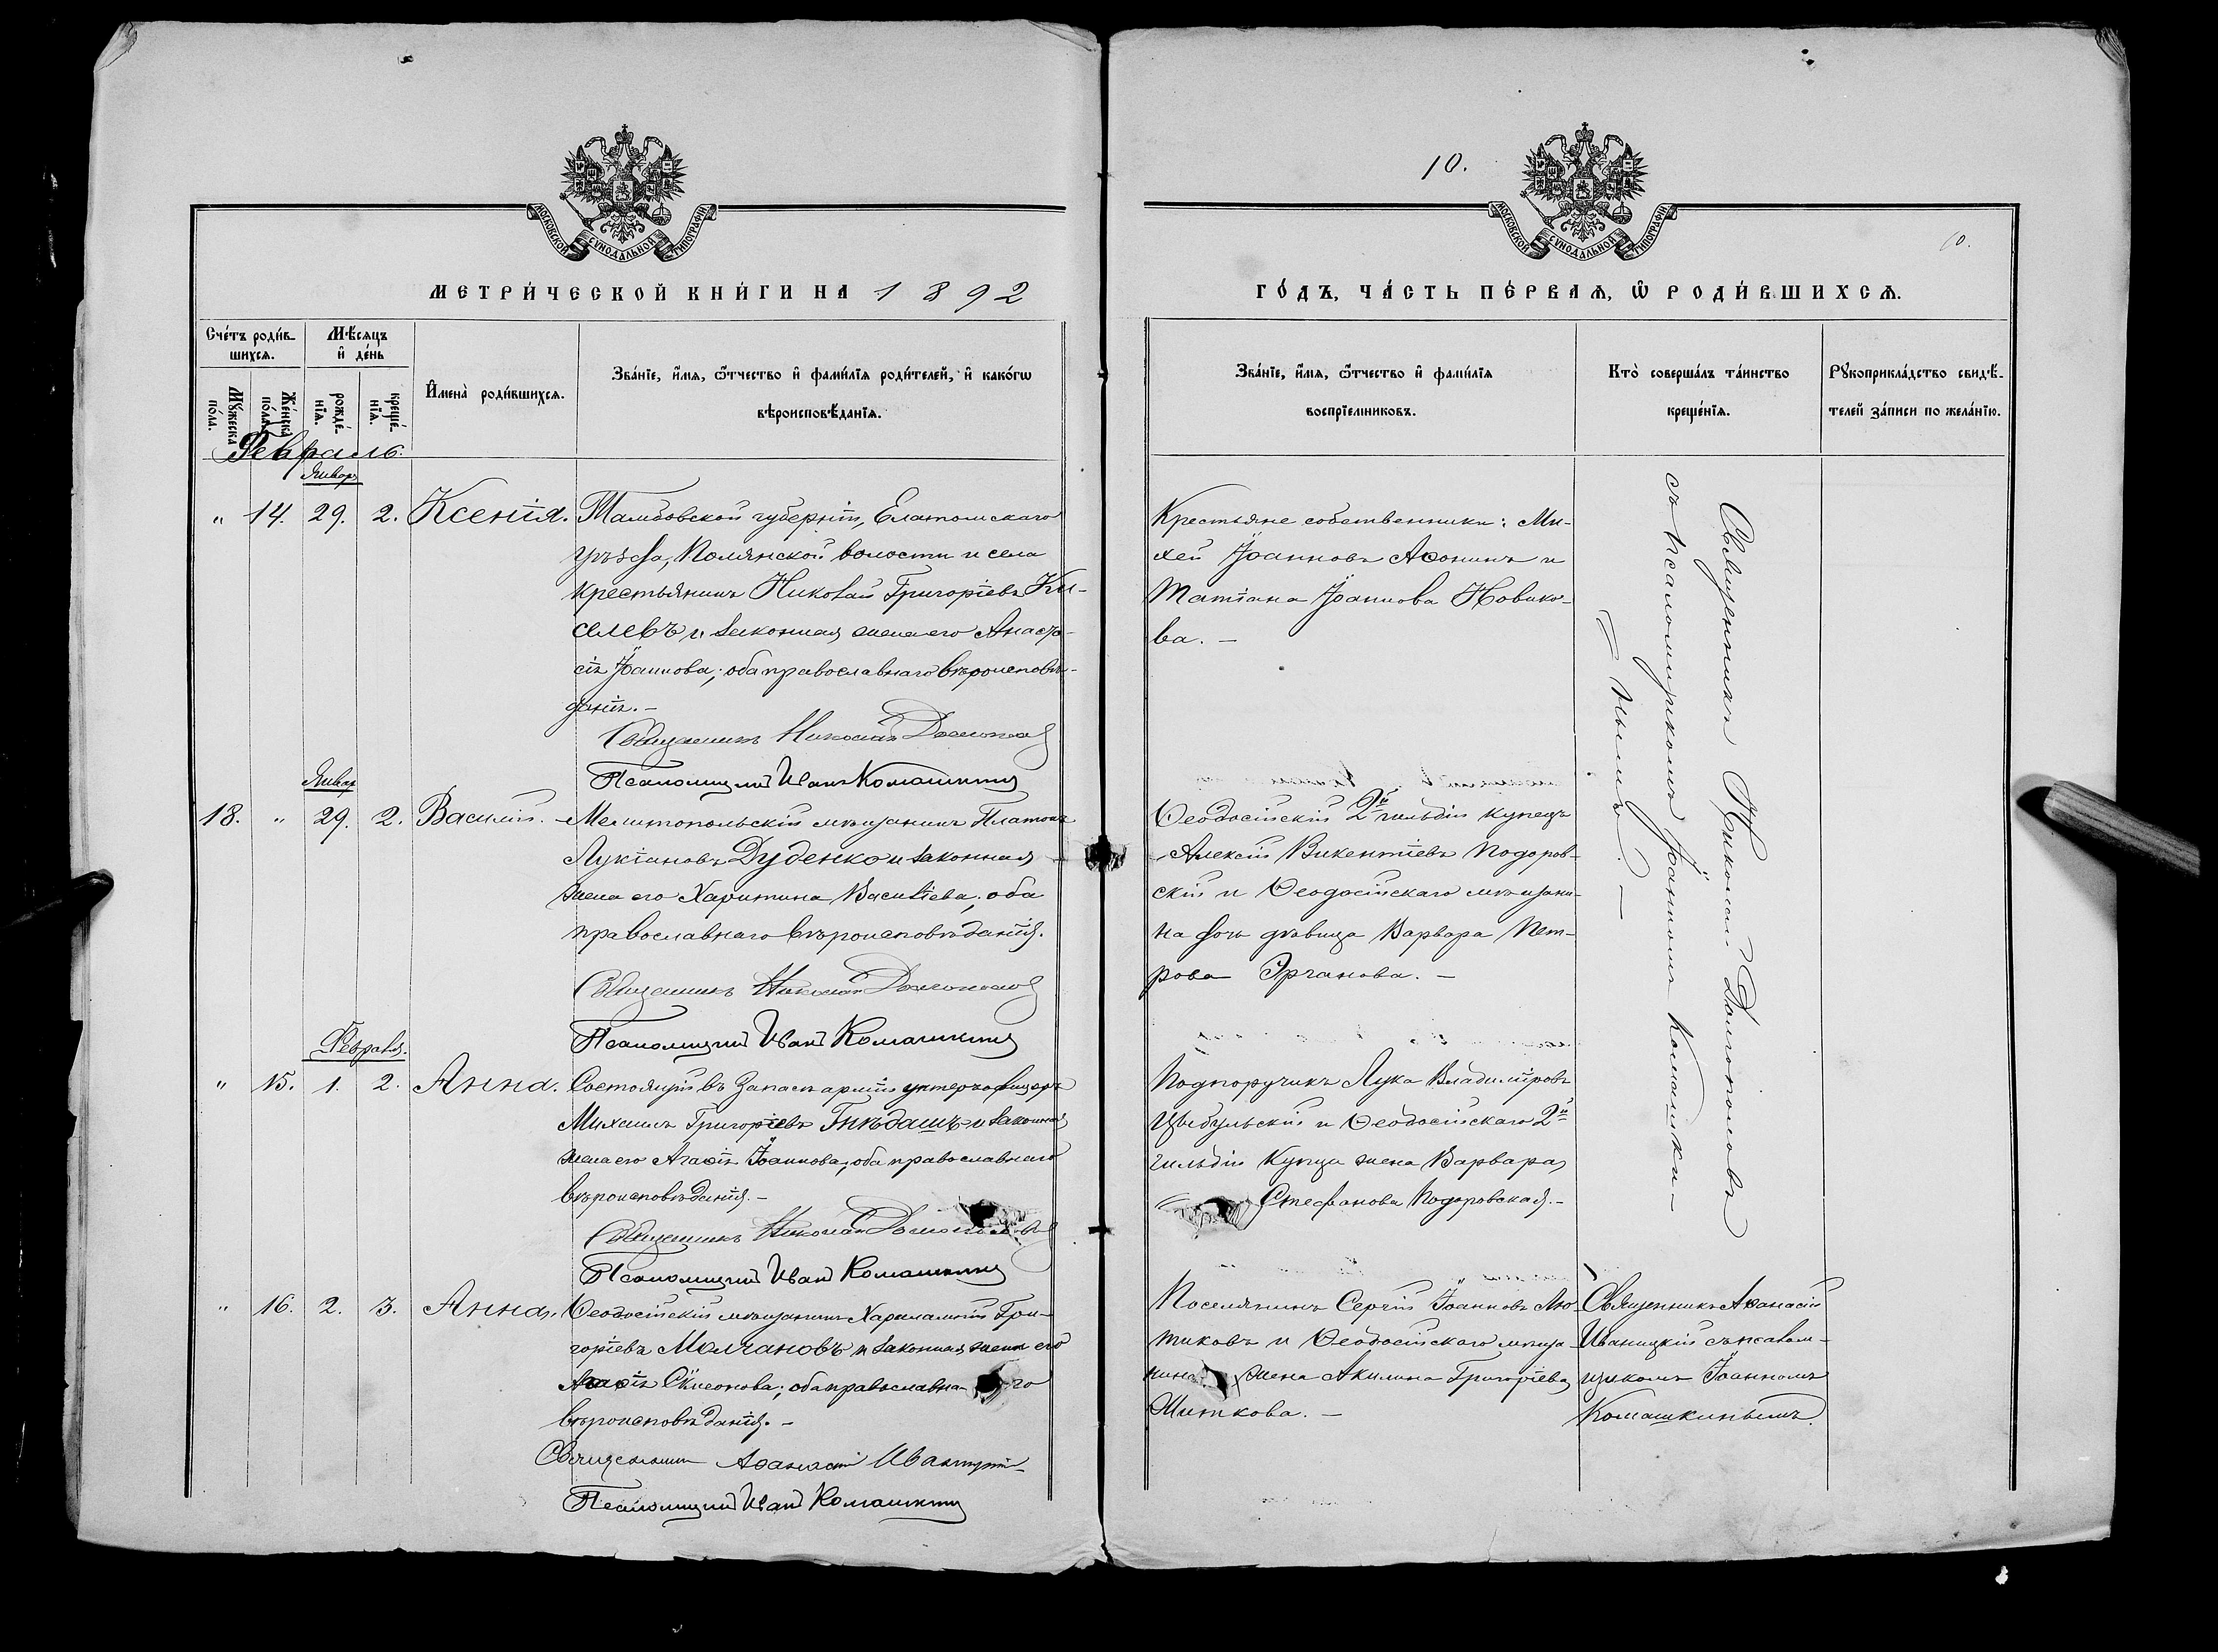 10.
10.
МОСКОВСКОЙ СУНОДАЛЬНОЙ ТИПОГРАФІИ
МОСКОВСКОЙ СУНОДАЛЬНОЙ ТИПОГРАФІИ
МЕТРИ́ЧЕСКОЙ КНИ́ГИ НА 1892
ГО́ДЪ, ЧА́СТЬ ПЕ́РВАѦ, Ѡ҆ РОДИ́ВШИХСѦ.
Сче́тъ роди́в-
шихсѧ.
Мꙋ́жеска
по́ла.
Же́нска
по́ла.
Мѣ́сяцъ
и҆ де́нь
рожде́-
нїѧ.
креще́-
нїѧ.
И҆мена̀ роди́вшихсѧ.
Зва́нїе, и҆́мѧ, ѻ҆́тчество и҆ фами́лїѧ роди́телей, и҆ како́гѡ
вѣроисповѣ́данїѧ.
Зва́нїе, и҆́мѧ, ѻ҆́тчество и҆ фами́лїѧ
воспрїе́мниковъ.
Кто̀ соверша́лъ та́инство
креще́нїѧ.
Рꙋкоприкла́дство свидѣ́-
телей за́писи по жела́нїю.
Февраль.
Январ
" 14. 29. 2. Ксенія.
Тамбовской губерніи, Елатомскаго
уѣзда, Полянской волости и села
крестьянинъ Николай Григоріевъ Ки-
селевъ и законная жена его Анаста-
сія Іоаннова; оба православнаго вѣроисповѣ-
данія. –
Священникъ Николай Долгополов
Псаломщикъ Иванъ Комашкинъ
Крестьяне собственники: Ми-
хей Іоанновъ Аѳонинъ и
Татіана Іоаннова Новико-
ва. –
Священникъ Николай Долгополовъ
съ псаломщикомъ Іоанномъ Комашки-
нымъ. –
Январ
18. " 29. 2. Василій.
Мелитопольскій мѣщанинъ Платонъ
Лукіановъ Дуденко и законная
жена его Харитина Василіева; оба
православнаго вѣроисповѣданія.
Священникъ Николай Долгополов
Псаломщикъ Иванъ Комашкинъ
Ѳеодосійскій 2й гильдіи купецъ
Алексій Викентіевъ Подоров-
скій и Ѳеодосійскаго мѣщани-
на дочь дѣвица Варвара Пет-
рова Эрганова. –
Февраля.
" 15. 1. 2. Анна.
Состоящій въ запасѣ арміи унтеръ офицеръ
Михаилъ Григоріевъ Гнѣдашъ и законная
жена его Агаѳія Іоаннова, оба православнаго
вѣроисповѣданія. –
Священникъ Николай Долгополовъ
Псаломщикъ Иванъ Комашкинъ
Подпоручикъ Лука Владиміровъ
Цыбульскій и Ѳеодосійскаго 2й
гильдіи купца жена Варвара
Стефанова Подоровская. –
" 16. 2. 3. Анна.
Ѳеодосійскій мѣщанинъ Харлампій Гри-
горіевъ Молчановъ и законная жена его
Агаѳія Сѵмеонова; оба православна-го
вѣроисповѣданія. –
Священникъ Аѳанасій Иваницкій
Псаломщикъ Иванъ Комашкинъ
Поселянинъ Сергій Іоанновъ Лю-
тиковъ и Ѳеодосійскаго мѣща-
нина жена Акилина Григоріева
Житкова. –
Священникъ Аѳанасій
Иваницкій съ псалом-
щикомъ Іоанномъ
Комашкинымъ.